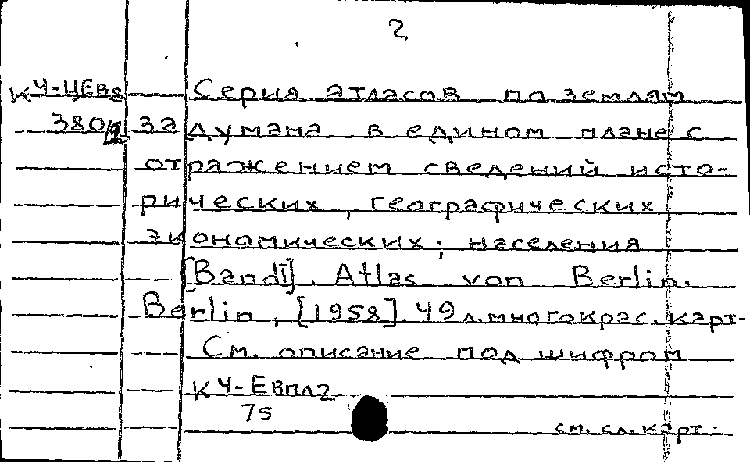 2
К Ч-ЦЕВ8 Серия атласов по землям
380/2 задумана в едином плане с
отражением сведений исто-
рических, географических
экономических; населения
[Band I]. Atlas von Berlin.
Berlin, [1958] 49 л. многокрас. карт.
См. описание под шифром
К Ч-Евпл2
75
см. сл. карт.